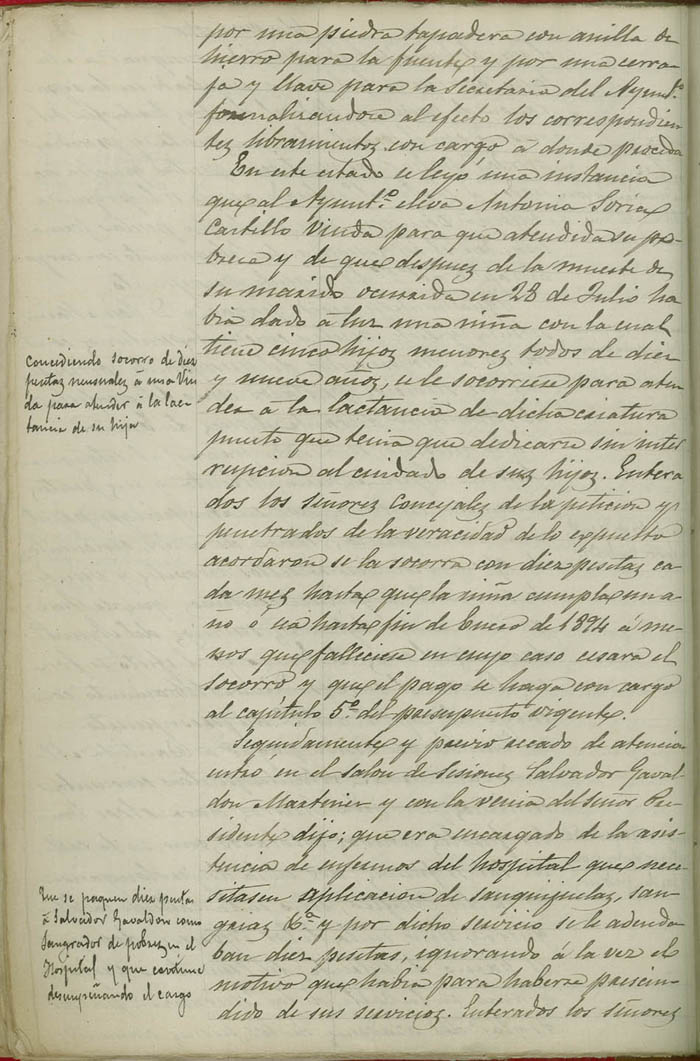 por una piedra tapadera con anilla de
hierro para la fuente y por una cerra
ja y llave para la Secretaria del Ayunt.º
formalizandose al efecto los correspondien
tes libramientos con cargo á donde proceda
En este estado se leyó una instancia
que al Ayunt.º eleva Antonia Soria
Castillo Viuda para que atendida su po
breza y de que despues de la muerte de
su marido ocurrida en 28 de Julio ha
bia dado á luz una niña con la cual
tiene cinco hijos menores todos de diez
y nueve años, se le socorriese para aten
der á la lactancia de dicha criatura
puesto que tenia que dedicarse sin inter
rupcion al cuidado de sus hijos. Entera
dos los señores Concejales de la peticion y
penetrados de la veracidad de lo expuesto
acordaron se la socorra con diez pesetas ca
da mes hasta que la niña cumpla un a
ño ó sea hasta fin de Enero de 1894 á me
nos que falleciese en cuyo caso cesara el
socorro y que el pago se haga con cargo
al capítulo 5º del presupuesto vigente.
Seguidamente y previo recado de atencion
entró en el salon de Sesiones Salvador Gaval
don Martinez y con la venia del Señor Pre
sidente dijo; que era encargado de la asis
tencia de enfermos del hospital que nece
sitasen aplicacion de sanguijuelas, san
grias &.ª y por dicho servicio se le adeuda
ban diez pesetas, ignorando á la vez el
motivo que habia para haberse prescin
dido de sus servicios. Enterados los señores
Concediendo socorro de diez
pesetas mensuales á una Viu
da para atender á la lac
tancia de su hija
Que se paguen diez pesetas
á Salvador Gavaldon como
Sangrador de pobres en el
Hospital y que continue
desempeñando el cargo